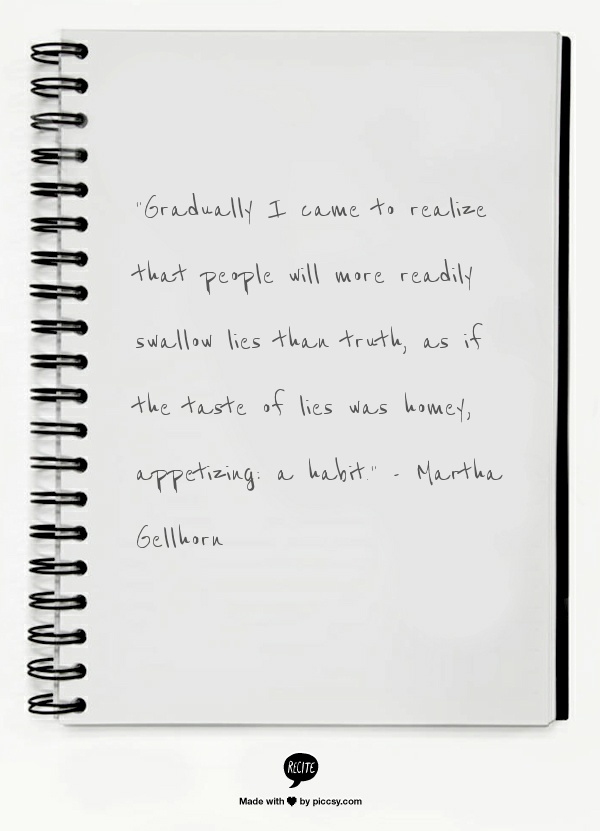 "Gradually I came to realize
that people will more readily
swallow lies than truth, as if
the taste of lies was homey,
appetizing: a habit." - Martha
Gellhorn
RECITE
Made with ♥ by piccsy.com